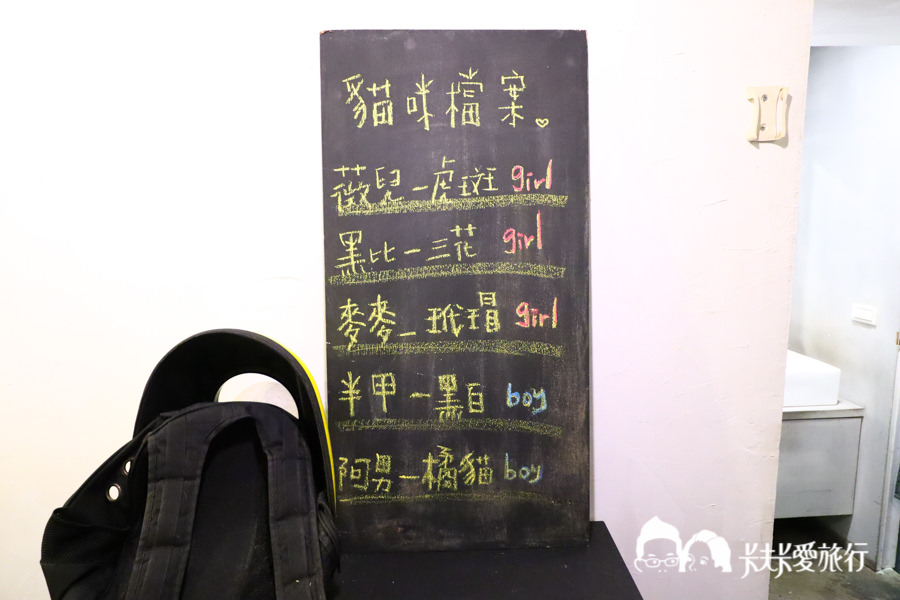 貓咪檔案。
薇兒－虎斑 girl
黑比－三花 girl
麥麥－玳瑁 girl
半甲－黑白 boy
阿男－橘貓 boy
卡夫卡愛旅行